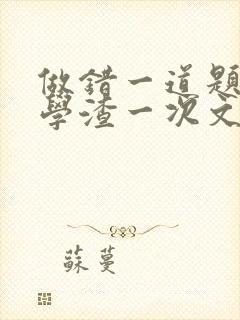 做錯一道題
學渣一次文
蘇蔓